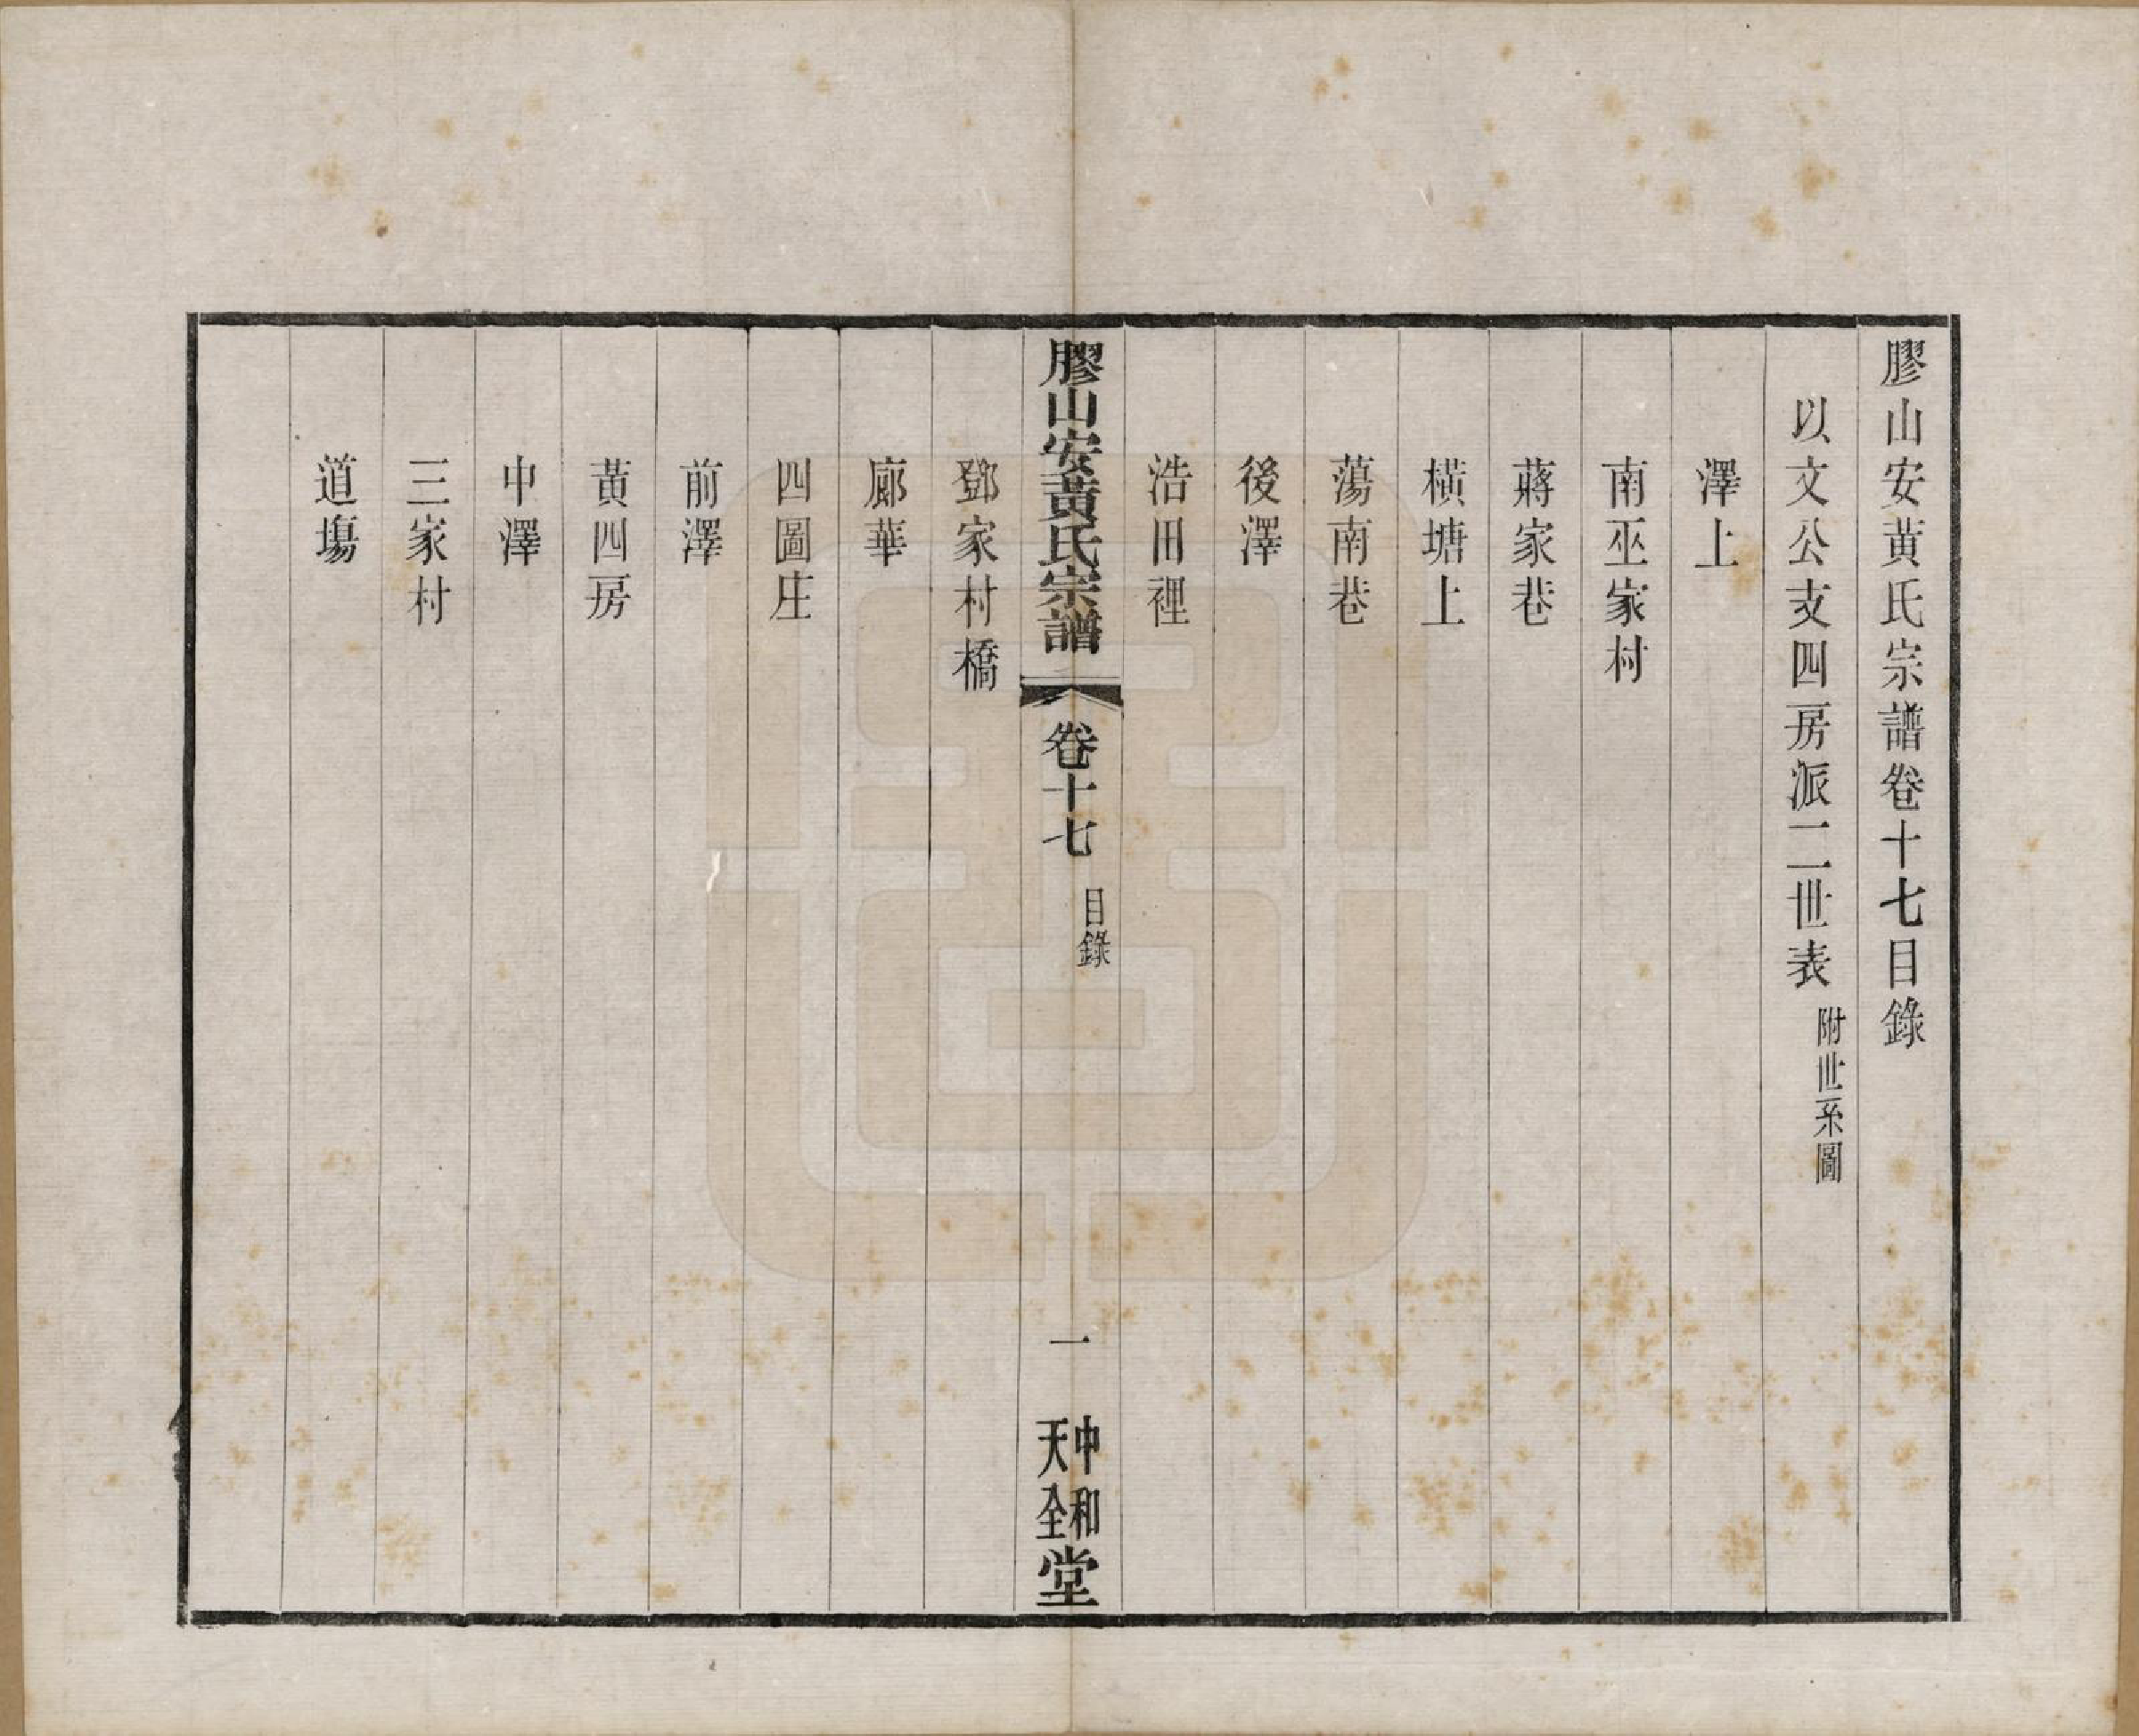 膠山安黄氏宗譜卷十七目錄
以文公支四房派二世表 附世系圖
澤上
南巫家村
蔣家巷
橫塘上
蕩南巷
後澤
浩田裡
膠山安黃氏宗譜 卷十七 目錄 一 中和天全堂
鄧家村橋
廊華
四圖庄
前澤
黃四房
中澤
三家村
道塲